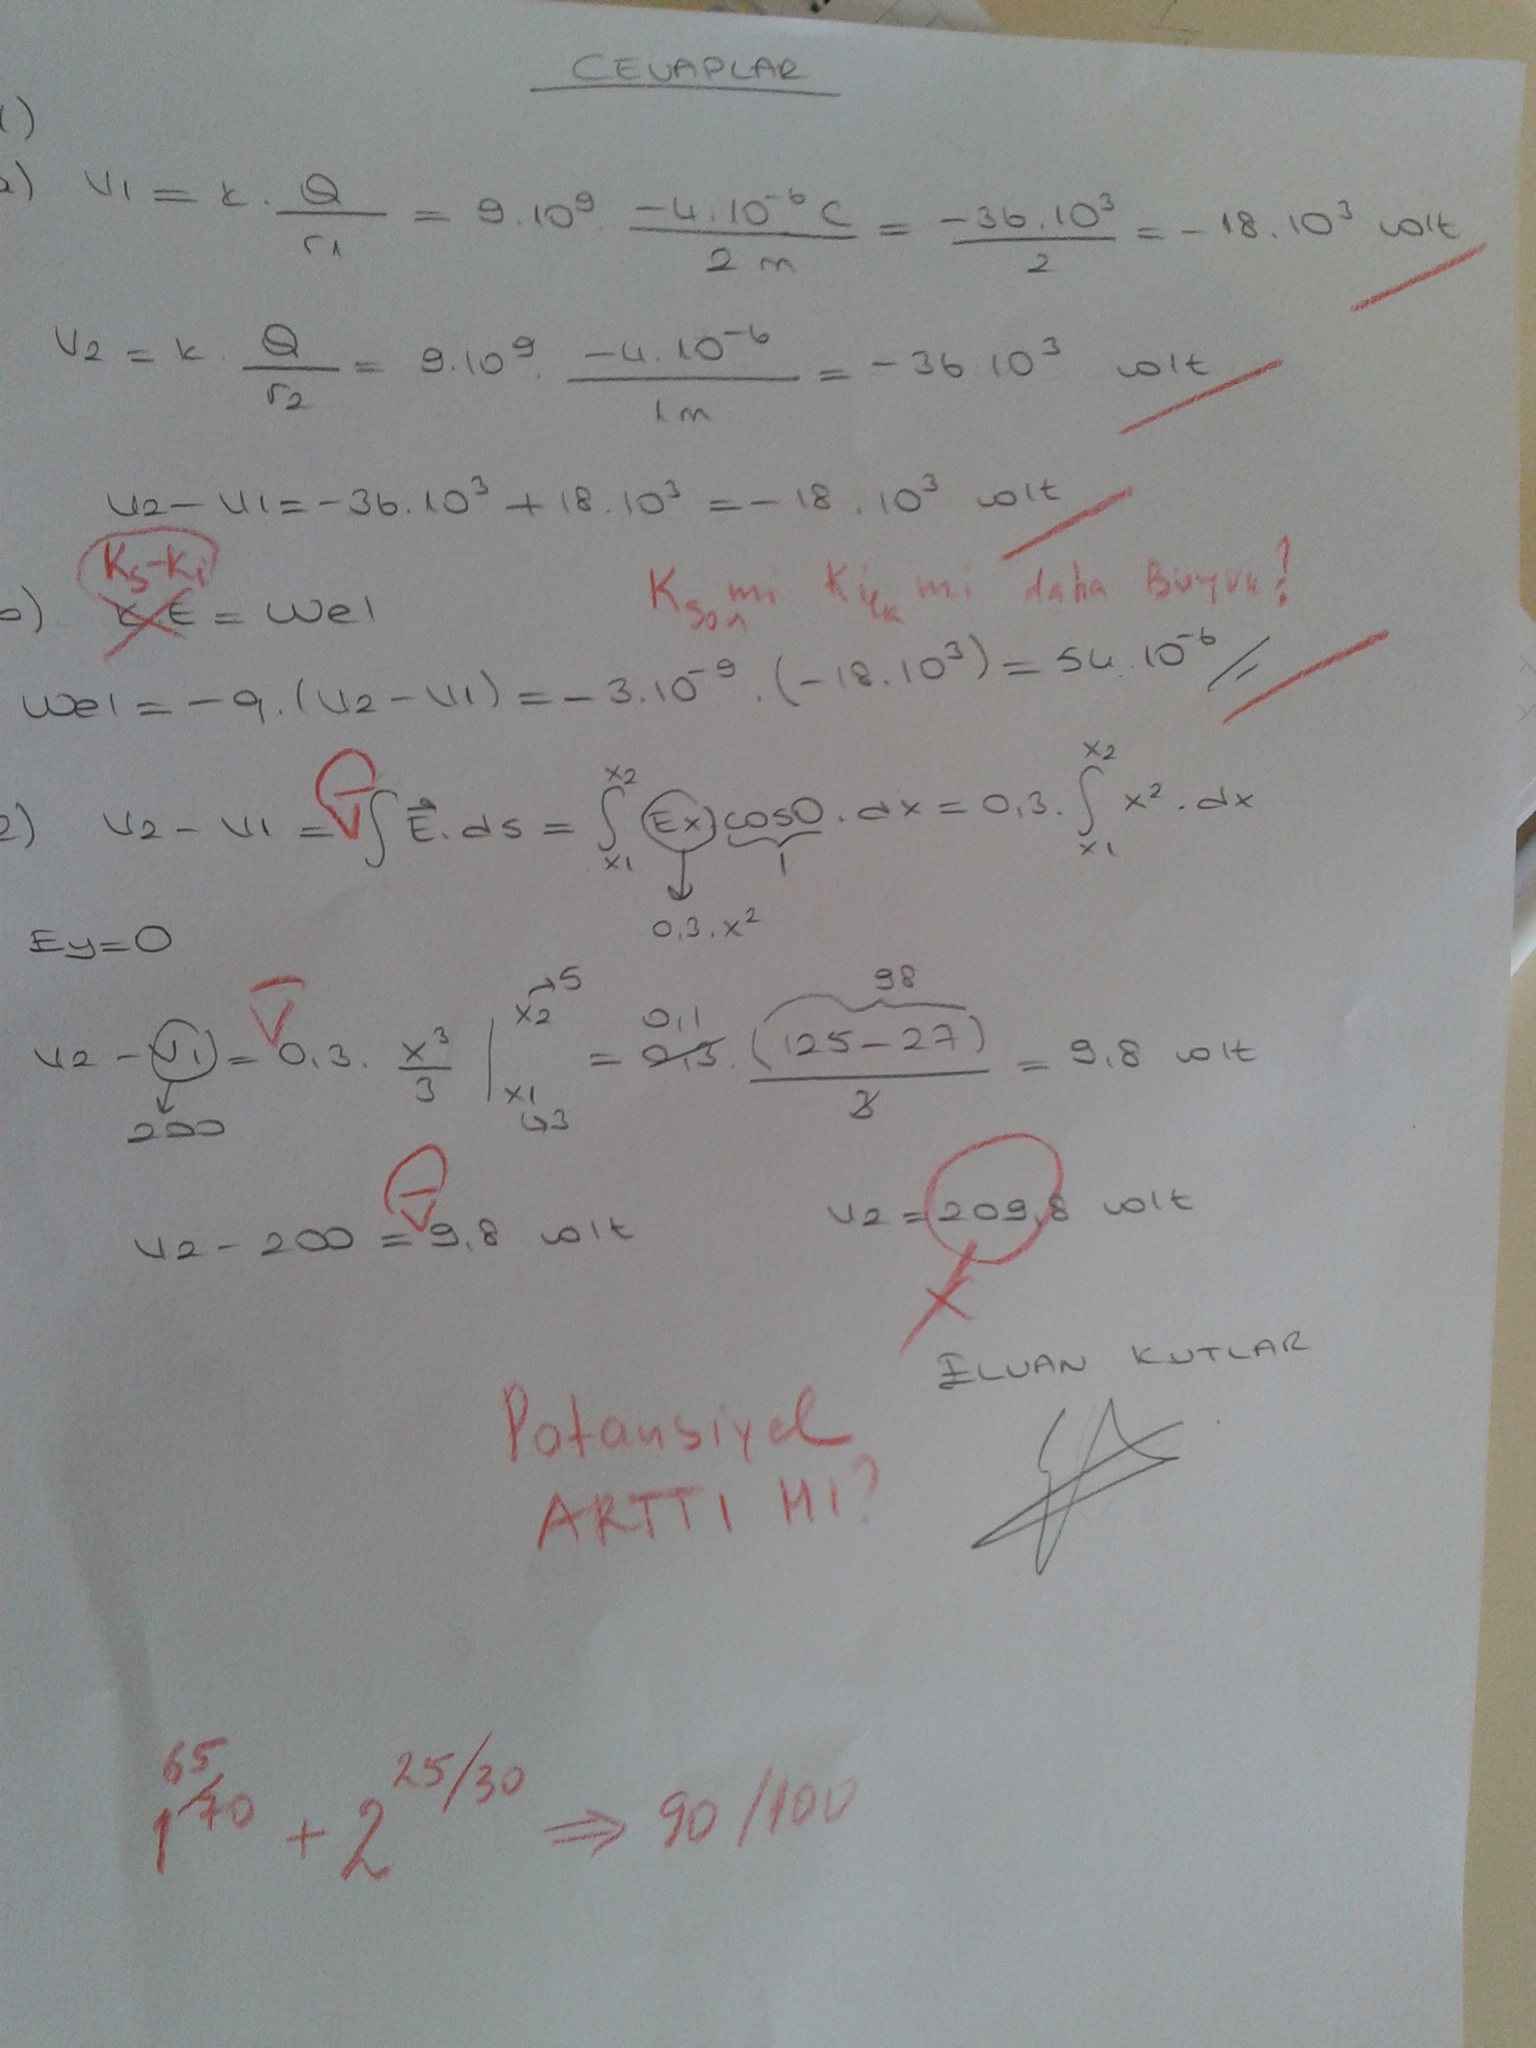 CEVAPLAR
1)
a) V1 = k . Q/r1 = 9.10⁹ . -4.10⁻⁶ C / 2 m = -36.10³ / 2 = -18.10³ volt
V2 = k . Q/r2 = 9.10⁹ . -4.10⁻⁶ / 1 m = -36.10³ volt
V2 - V1 = -36.10³ + 18.10³ = -18.10³ volt
Ks-Ki
b) KE = Wel
Kson mı Kilk mi daha Büyük?
Wel = -q.(V2 - V1) = -3.10⁻⁹ . (-18.10³) = 54.10⁻⁶ //
2) V2 - V1 = - ∫ E⃗ . ds = ∫x1 x2 (Ex) cos0 . dx = 0,3 . ∫x1 x2 x² . dx
1
0,3.x²
Ey=0
V2 - V1 = - 0,3 . x³/3 | x2→5 x1→3 = 0,1 0,3 . (125-27) / 3 = 9,8 volt
98
200
V2 - 200 = - 9,8 volt V2 = 209,8 volt
ILVAN KUTLAR
Potansiyel
ARTTI MI?
1 65/70 + 2 25/30 ⇒ 90/100